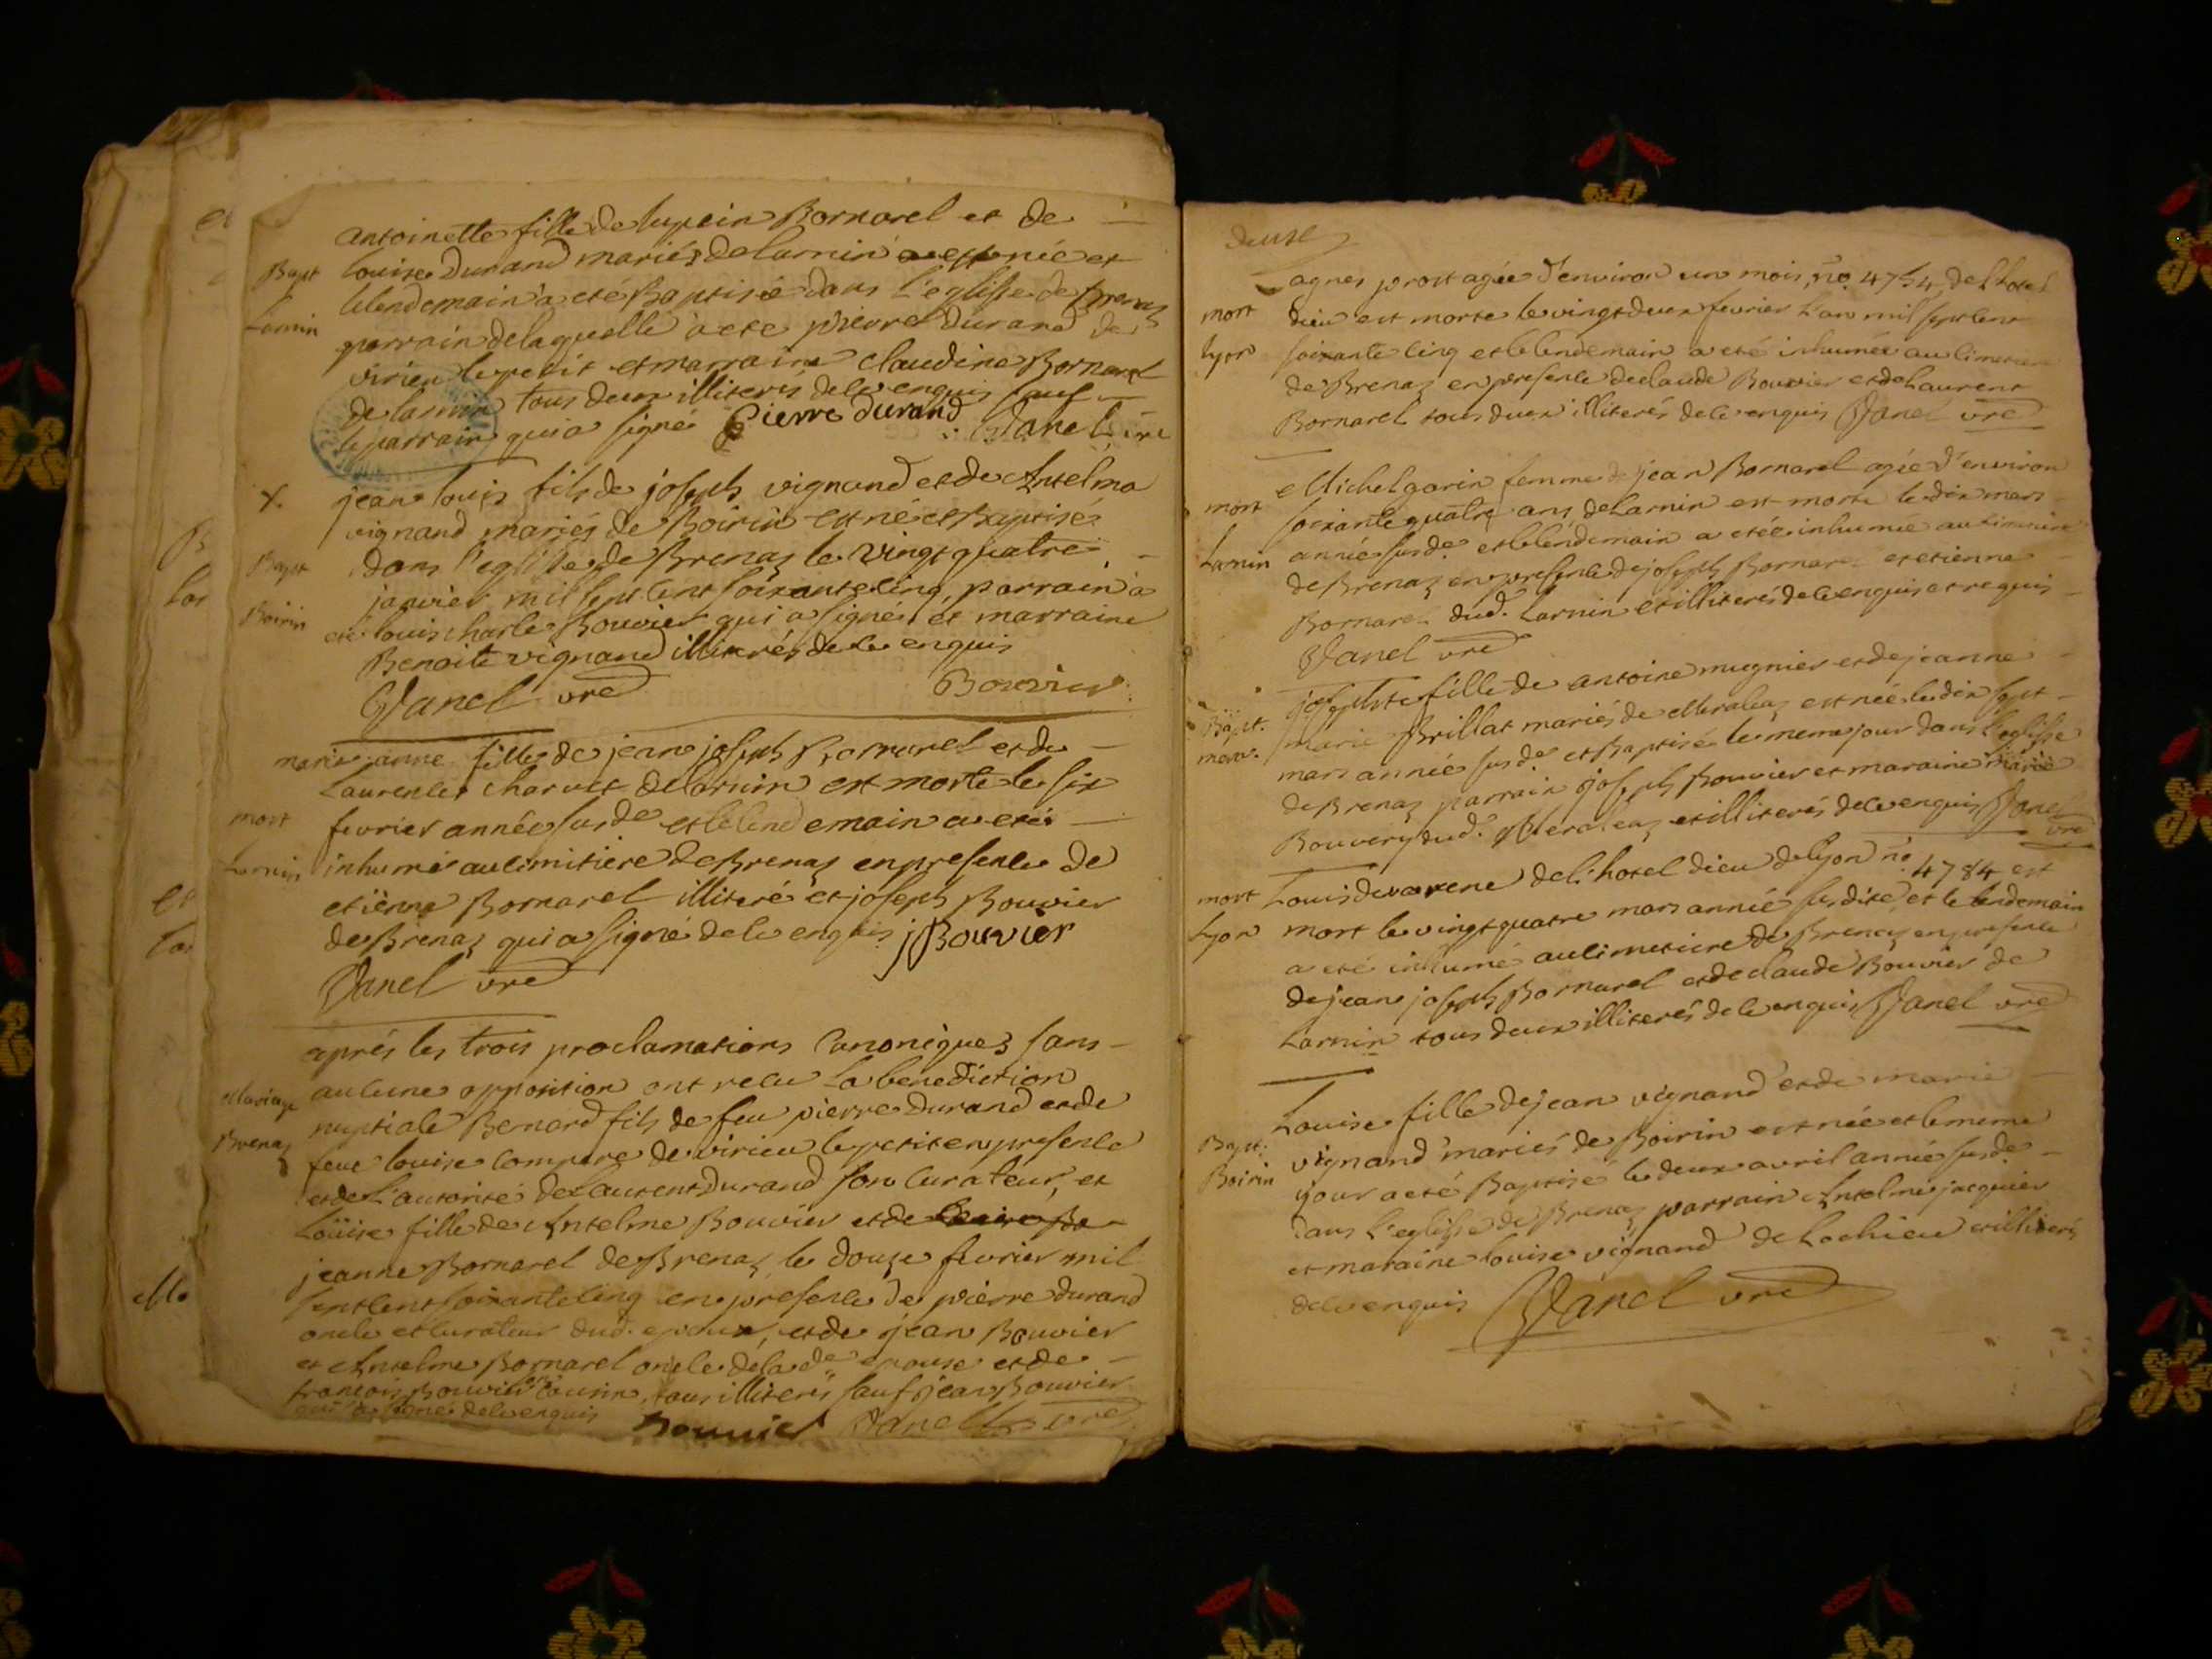 antoinette fille de lupcin Bornarel et de
Bapt louise Durand mariés de Larnin est née et
Larnin lelendemain a eté Baptisé dans l'eglisse de Brenaz
parrain delaquelle a eté pierre durand de
virieu le petit et marraine claudine Bornarel
de larnin tous deux illiterés dece enquis sauf
le parrain qui a signé Pierre durand Janel vre
x. jean louis fils de joseph vignand et de Antelma
vignand mariés de Boirin est né et Baptisé
Bapt dans l'eglise de Brenaz le vingt quatre
Boirin janvier mil sept cent soixante cinq, parrain a
eté louis charle Bouvier qui a signé et marraine
Benoite vignand illiterés de ce enquis
Janel vre Bouvier
marie anne fille de jean joseph Bornarel et de
Laurence charvet de larnin est morte le six
mort fevrier année susde et lelendemain a eté
Larnin inhumé au cimitiere de Brenaz en presence de
etienne Bornarel illiteré et joseph Bouvier
de Brenaz qui a signé de ce enquis jBouvier
Janel vre
aprés les trois proclamations Canoniques sans
Mariage aucune opposition ont recu La benediction
Brenaz nuptiale Benard fils de feu pierre Durand et de
feue louise compare de virieu le petit en presence
et de L'autorité de Laurent Durand son curateur, et
Loüise fille de Antelme Bouvier et de
jeanne Bornarel de Brenaz le douze fevrier mil
sept cent soixante cinq en presence de pierre durand
oncle et curateur dud. epoux, et de jean Bouvier
et Antelme Bornarel oncle de la de epouse et de
francois Bouvier cousin, tous illiterés sauf jean Bouvier
qui a signé de ce enquis Bouvier Janel vre
deuxe
agnes prost agée d'environ un mois, no. 4754, de l'hotel
mort dieu est morte le vingt deux fevrier L'an mil sept cent
Lyon soixante cinq et le lendemain a eté inhumée au cimetiere
de Brenaz en presence de claude Bouvier et de Laurent
Bornarel tous deux illiterés de ce enquis Janel vre
Michel garin femme de jean Bornarel agée d'environ
mort soixante quatre ans de Larnin est morte le dix mars
Larnin année susde et le lendemain a etée inhumée au cimitiere
de Brenaz en presence de joseph Bornarel et etienne
Bornarel dud. Larnin et illiterés de ce enquis et requis
Janel vre
Bapt. josephte fille de antoine mugnier et de jeanne
marie Brillat mariés de Meraleaz est née le dix sept
mera. mars année susde et Baptisé le meme jour dans l'eglisse
de Brenaz parrain joseph Bouvier et maraine marie
Bouvery dud. Meraleaz et illiterés de ce enquis Janel
vre
mort Louis devarene de l'hotel dieu de Lyon no. 4784 est
Lyon mort le vingt quatre mars année susdite et le lendemain
a eté inhumé au cimetiere de Brenaz en presence
de jean joseph Bornarel et de claude Bouvier de
Larnin tous deux illiterés de ce enquis Janel vre
Louise fille de jean vignand et de marie
Bapt: vignand mariés de Boirin est née et le meme
Boirin jour a eté Baptisé le deux avril année susde
dans l'eglisse de Brenaz parrain Antelme jacquier
et maraine louise vignand de Lochieu et illiterés
de ce enquis Janel vre